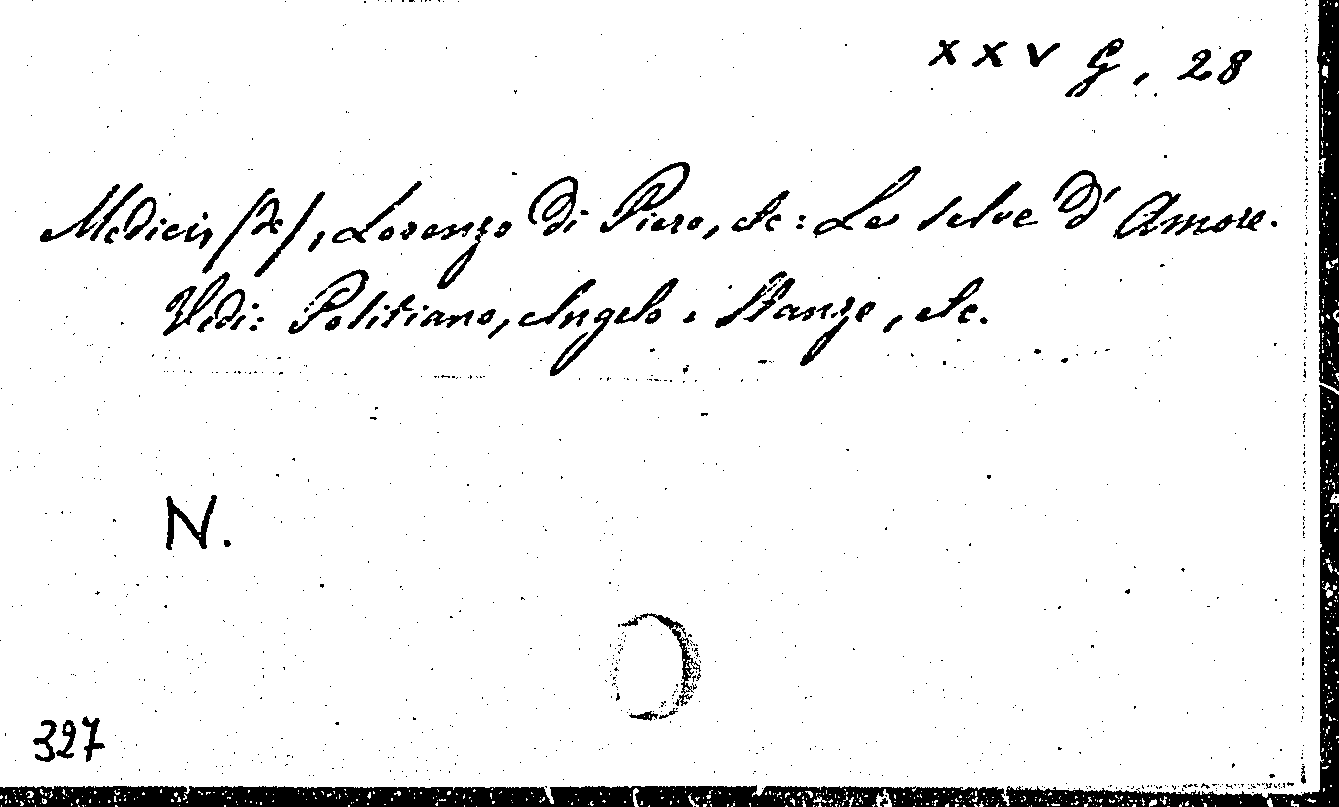 XXV G, 28
Medicis (de), Lorenzo di Piero, etc: Le selve d'Amore.
Vedi: Politiano, Angelo. Stanze, etc.
N.
327